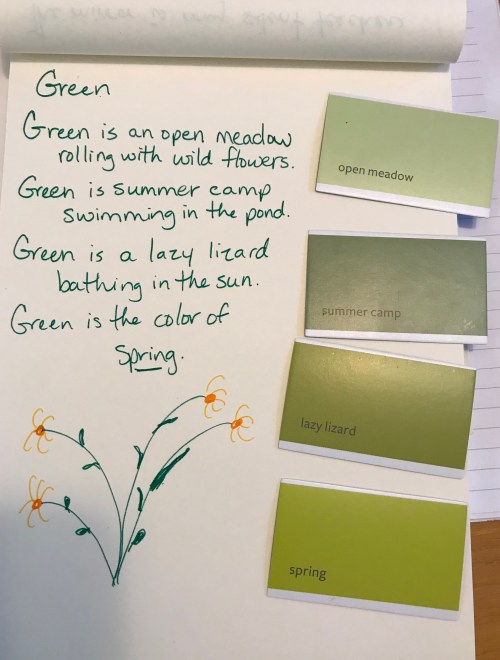 Green
Green is an open meadow
rolling with wild flowers.
Green is summer camp
swimming in the pond.
Green is a lazy lizard
bathing in the sun.
Green is the color of
Spring.
open meadow
summer camp
lazy lizard
spring